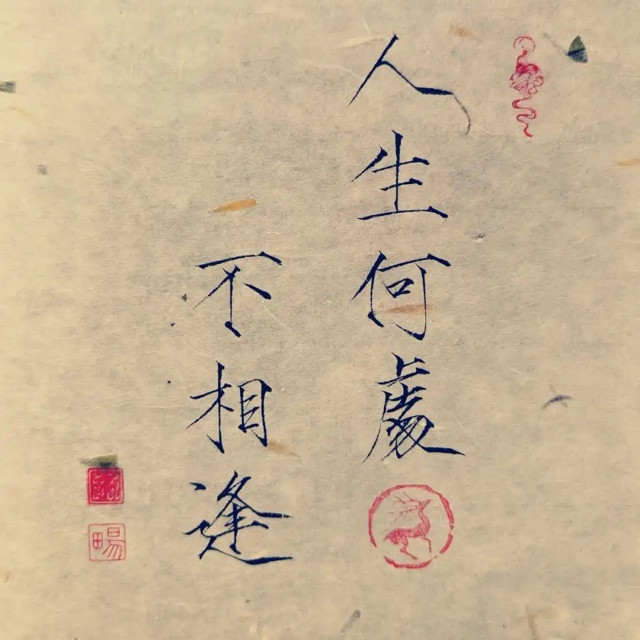 人生何處
不相逢
暢